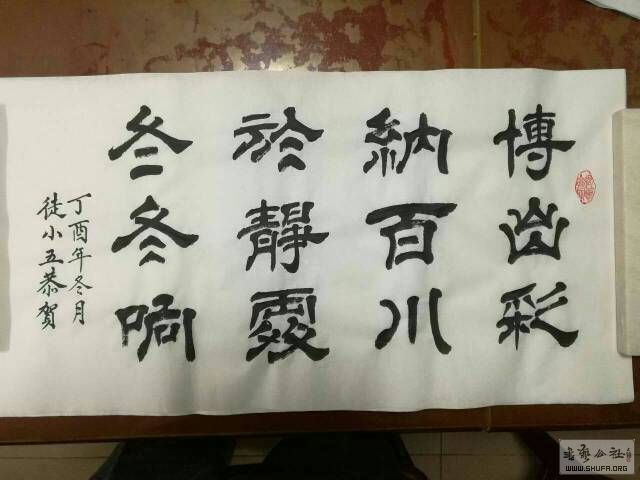 博出彩
納百川
於靜
冬冬响
丁酉年冬月
徒小五恭賀
書藝公社
WWW.SHUFA.ORG